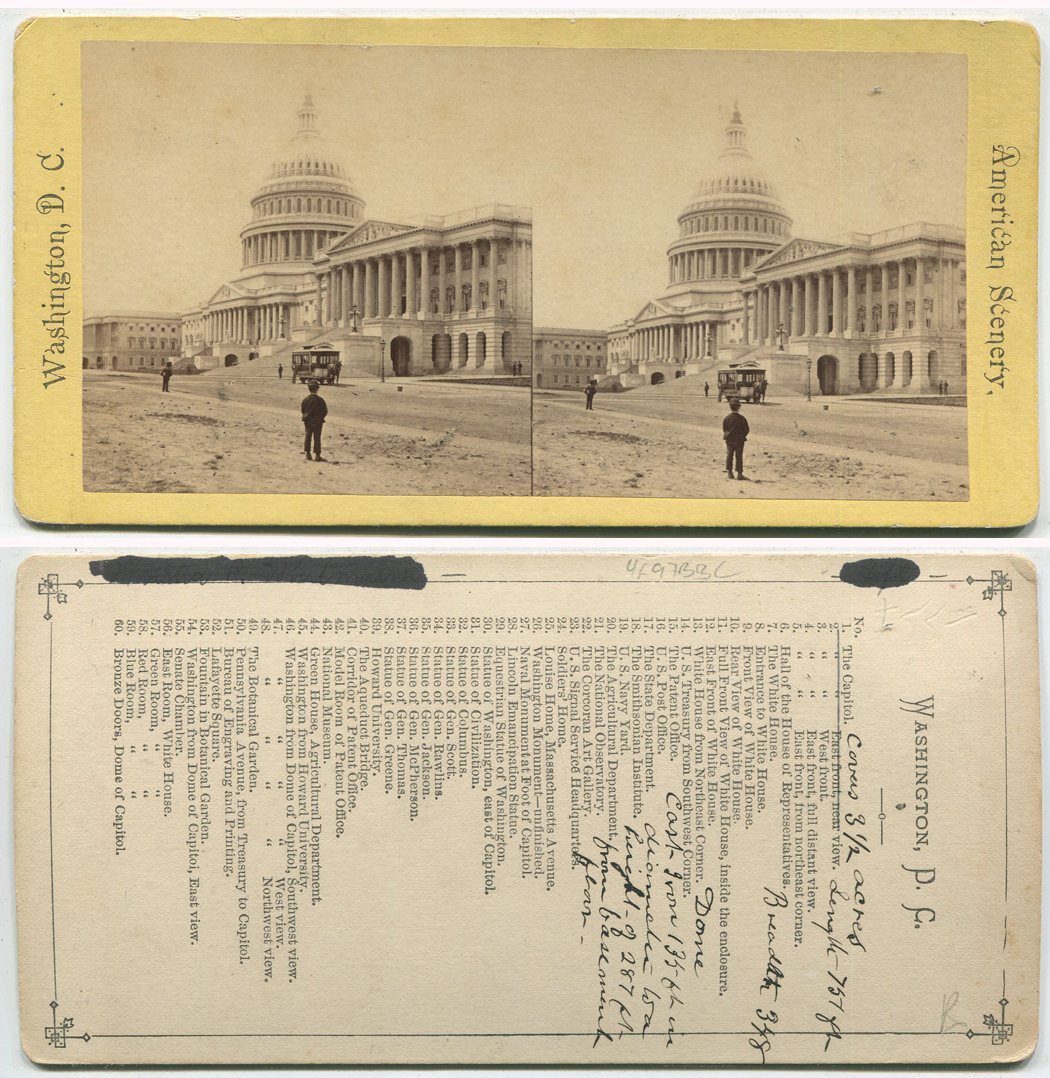 Washington, D. C.
American Scenery,
4F97BBC
WASHINGTON, D. C.
No.
1. The Capitol. Covers 3 1/2 acres
2. " East front, near view. Length 751 ft
3. " West front.
4. " East front, full distant view.
5. " East front, from northeast corner.
6. Hall of the House of Representatives. Breadth 348
7. The White House.
8. Entrance to White House.
9. Front View of White House.
10. Rear View of White House.
11. Full Front View of White House, inside the enclosure.
12. East Front of White House.
13. White House from Northeast Corner. Dome
14. U. S. Treasury from Southwest Corner.
15. The Patent Office. East front 135 ft in
16. U. S. Post Office.
17. The State Department. diameter to a
18. The Smithsonian Institute. height of 287 ft
19. U. S. Navy Yard.
20. The Agricultural Department. from basement
21. The National Observatory. floor -
22. The Corcoran Art Gallery.
23. U. S. Signal Service Headquarters.
24. Soldiers' Home.
25. Louise Home, Massachusetts Avenue.
26. Washington Monument—unfinished.
27. Naval Monument at Foot of Capitol.
28. Lincoln Emancipation Statue.
29. Equestrian Statue of Washington.
30. Statue of Washington, east of Capitol.
31. Statue of Civilization.
32. Statue of Columbus.
33. Statue of Gen. Scott.
34. Statue of Gen. Rawlins.
35. Statue of Gen. Jackson.
36. Statue of Gen. McPherson.
37. Statue of Gen. Thomas.
38. Statue of Gen. Greene.
39. Howard University.
40. The Aqueduct Bridge.
41. Corridor of Patent Office.
42. Model Room of Patent Office.
43. National Museum.
44. Green House, Agricultural Department.
45. Washington from Howard University.
46. Washington from Dome of Capitol, Southwest view.
47. " " " " West view.
48. " " " " Northwest view.
49. The Botanical Garden.
50. Pensylvania Avenue, from Treasury to Capitol.
51. Bureau of Engraving and Printing.
52. Lafayette Square.
53. Fountain in Botanical Garden.
54. Washington from Dome of Capitol, East view.
55. Senate Chamber.
56. East Room, White House.
57. Green Room, " "
58. Red Room, " "
59. Blue Room, " "
60. Bronze Doors, Dome of Capitol.